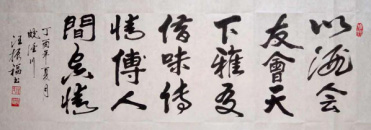 以酒会
友會天
下雅友
借味傳
情博人
間真情
丁酉年夏月